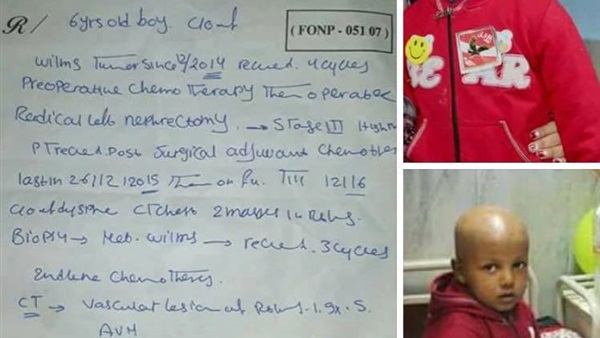 R/ 6yrs old boy c/o of
(FONP - 051 07)
Wilms Tumor since 12/2014 recived. 4 cycles
Preoperative Chemo Therapy Then operated
Radical left nephrectomy. → Stage III
PT recived Post Surgical adjuvant Chemother
last in 26/12/2015 Then on fu. Till 12/16
c/o of dyspnea CT chest 2 masses in
Biopsy → Met. Wilms → recived. 3 cycles
2nd line Chemotherapy.
CT → Vascular lesion at
AVM